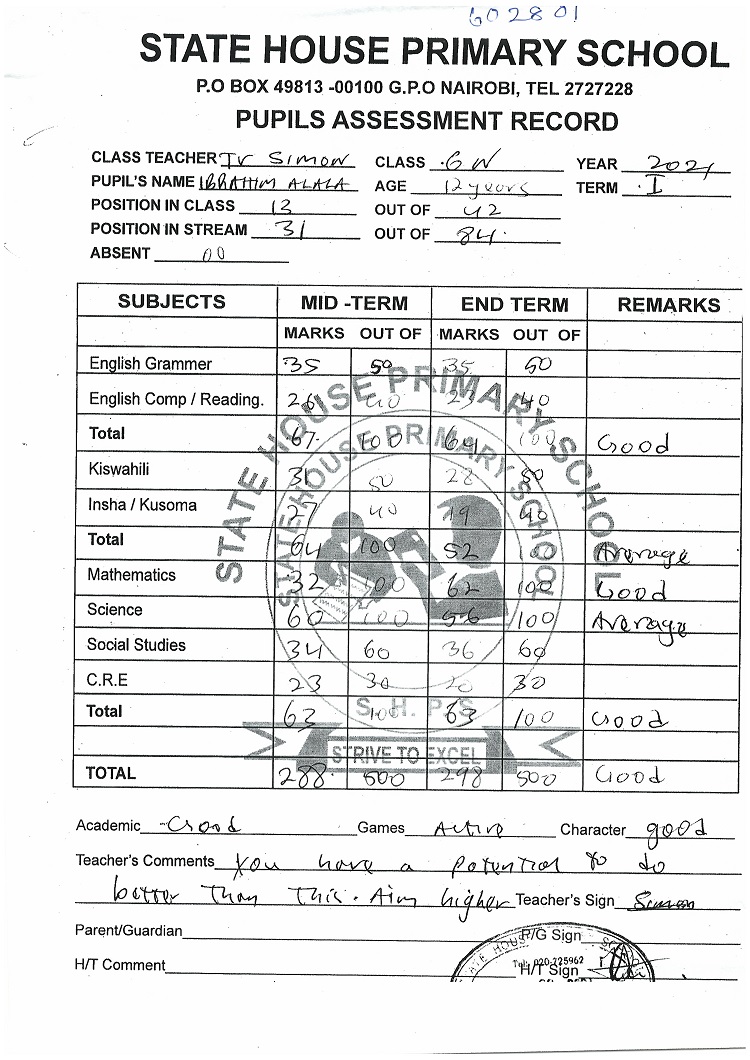 602801
STATE HOUSE PRIMARY SCHOOL
P.O BOX 49813 -00100 G.P.O NAIROBI, TEL 2727228
PUPILS ASSESSMENT RECORD
CLASS TEACHER Tr SIMON CLASS 6N YEAR 2021
PUPIL'S NAME IBRAHIM ALALA AGE 12 years TERM I
POSITION IN CLASS 13 OUT OF 42
POSITION IN STREAM 31 OUT OF 84
ABSENT 00
SUBJECTS MID -TERM END TERM REMARKS
MARKS OUT OF MARKS OUT OF
English Grammer 35 50 35 50
English Comp / Reading. 26 40 23 40
Total 67 100 64 100 Good
Kiswahili 31 50 28 50
Insha / Kusoma 27 40 19 40
Total 64 100 52 100 Average
Mathematics 32 100 62 100 Good
Science 60 100 56 100 Average
Social Studies 34 60 36 60
C.R.E 23 30 20 30
Total 63 100 63 100 Good
TOTAL 288 500 298 500 Good
STATE HOUSE PRIMARY SCHOOL
STATE HOUSE PRIMARY SCHOOL
S.H.P.S
STRIVE TO EXCEL
Academic Good Games Active Character good
Teacher's Comments You have a potential to do
better than this. Aim higher Teacher's Sign Simon
Parent/Guardian P/G Sign
H/T Comment H/T Sign
STATE HOUSE
Tel: 020-225962